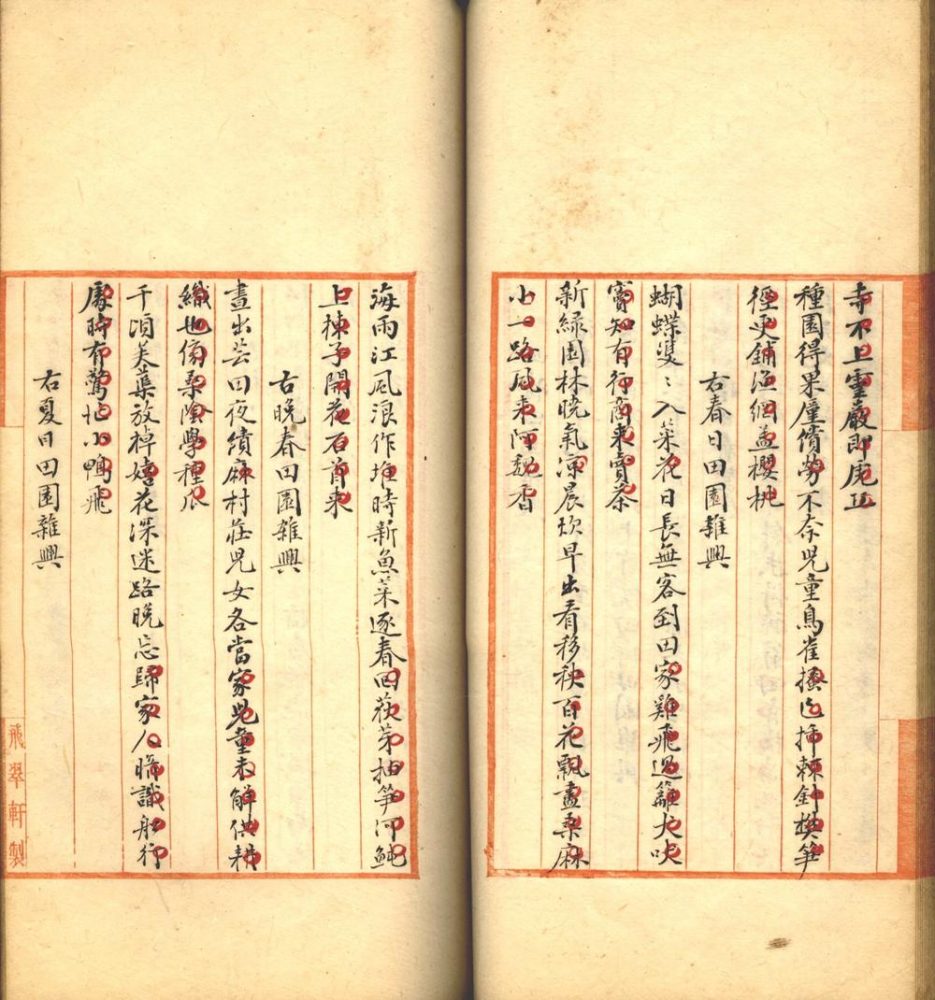 寺不上靈巖即虎丘
種園得果廑償勞不奈兒童鳥雀搔已插棘針樊筍
徑更鋪漁網蓋櫻桃
右春日田園雜興
蝴蝶雙〻入菜花日長無客到田家雞飛過籬犬吠
竇知有行商來賣茶
新綠園林曉氣涼晨炊早出看移秧百花飄盡桑麻
小一路風來阿魏香
海雨江風浪作堆時新魚菜逐春回荻芽抽筍河魨
上楝子開花石首來
右晚春田園雜興
晝出芸田夜績麻村莊兒女各當家兒童未解供耕
織也傍桑陰學種瓜
千頃芙蕖放棹嬉花深迷路晚忘歸家人暗識船行
處時有驚忙小鴨飛
右夏日田園雜興
飛翠軒製